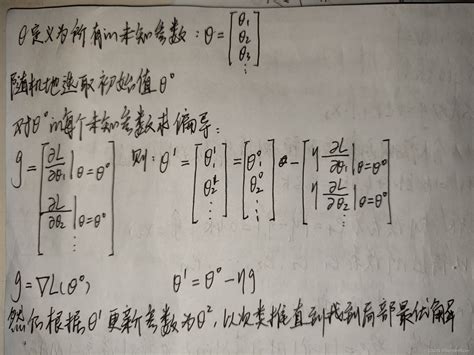 θ定义为所有的未知参数：θ = [θ₁ θ₂ θ₃ ⋮]
随机地选取初始值 θ⁰
对θ⁰的每个未知参数求偏导：
g = [∂L/∂θ₁|θ=θ⁰ ∂L/∂θ₂|θ=θ⁰ ⋮] 则：θ¹ = [θ₁¹ θ₂¹ ⋮] = [θ₁⁰ θ₂⁰ ⋮] - [η ∂L/∂θ₁|θ=θ⁰ η ∂L/∂θ₂|θ=θ⁰ ⋮]
g = ∇L(θ⁰) θ¹ = θ⁰ - ηg
然后根据θ¹更新参数为θ²，以次类推直到找到局部最优解